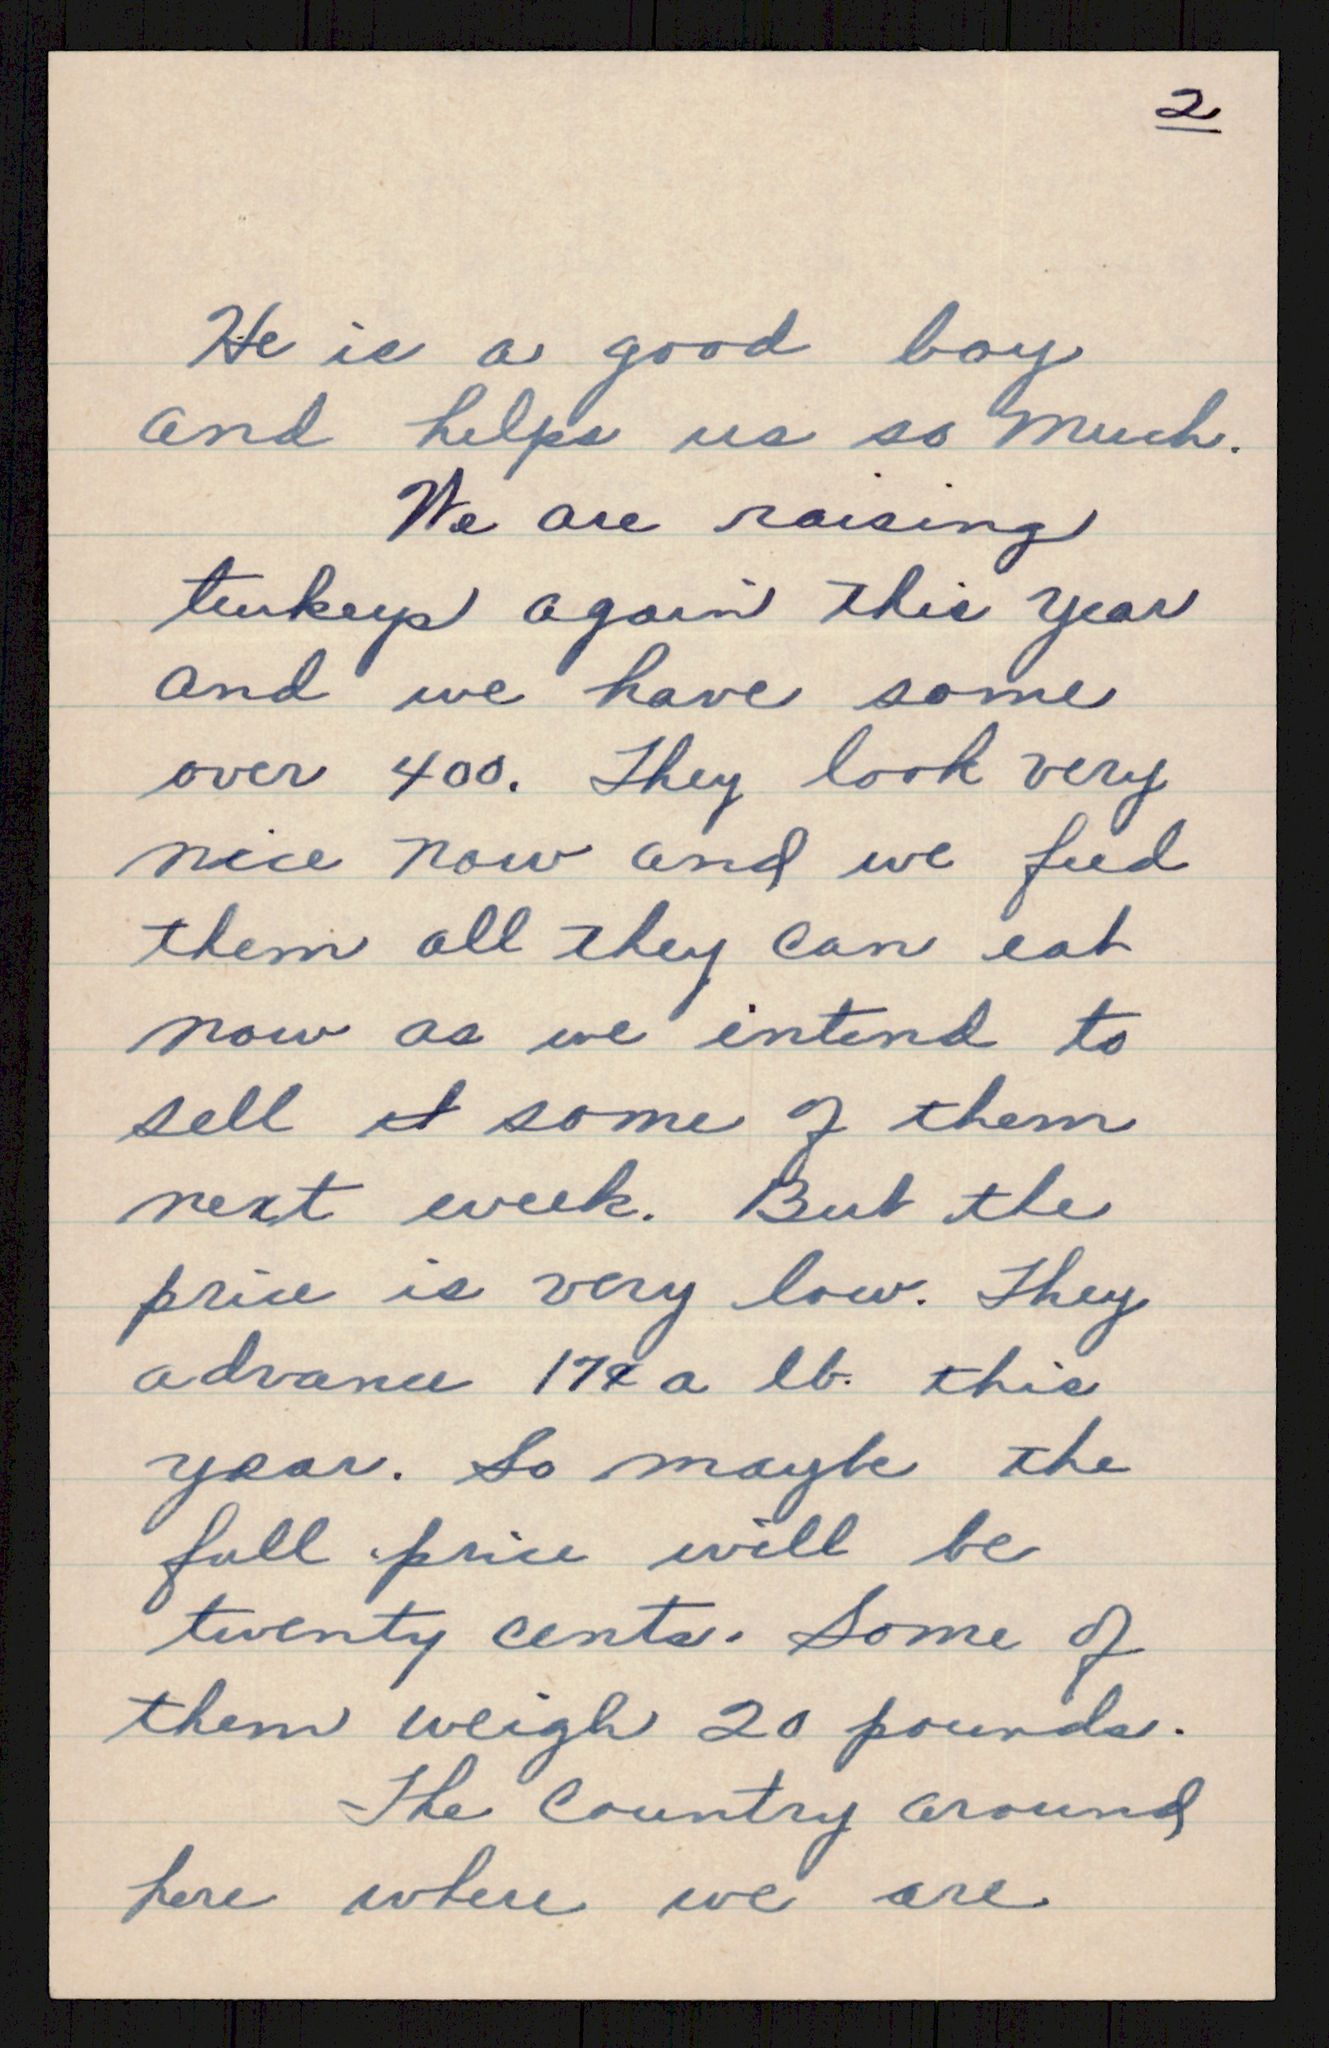 2
He is a good boy
and helps us so much.
We are raising
turkeys again this year
and we have some
over 400. They look very
nice now and we feed
them all they can eat
now as we intend to
sell some of them
next week. But the
price is very low. They
advance 17¢ a lb. this
year. So maybe the
full price will be
twenty cents. Some of
them weigh 20 pounds.
The Country around
here where we are